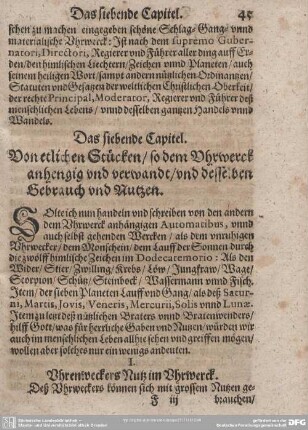 Das siebende Capitel. 45
sehen zu machen eingegeben schöne Schlag, Gang, vnnd
materialische Vhrwerck: Ist nach dem supremo Guber-
natori, Directori, Regierer vnd Führer aller ding auff Er-
den, den himlischen Liechtern, Zeichen vnnd Planeten, auch
seinem heiligen Wort, sampt andern nützlichen Ordinantzen,
Statuten vnd Gesatzen der weltlichen Christlichen Oberkeit,
der rechte Principal, Moderator, Regierer vnd Führer deß
menschlichen Lebens, vnnd desselben gantzen Handels vnnd
Wandels.
Das siebende Capitel.
Von etlichen Stücken, so dem Vhrwerck
anhengig vnd verwandt, vnd desselben
Gebrauch vnd Nutzen.
Solte ich nun handeln vnd schreiben von den andern
dem Vhrwerck anhängigen Automatibus, vnnd
auch selbst gehenden Wercken, als dem vnruhigen
Vhrwecker, dem Menschein, dem Lauff der Sonnen durch
die zwölff himlische Zeichen im Dodecatemorio: Als den
Wider, Stier, Zwilling, Krebs, Löw, Jungfraw, Wage,
Scorpion, Schütz, Steinbock, Wassermann vnnd Fisch.
Item, der sieben Planeten Lauff vnd Gang, als deß Satur-
ni, Martis, Jovis, Veneris, Mercurii, Solis vnd Lunæ.
Item zu letzt deß nützlichen Braters vnnd Bratenwenders,
hilff Gott, was für herrliche Gaben vnd Nutzen, würden wir
auch im menschlichen Leben allhie sehen vnd greiffen mögen,
wollen aber solches nur ein wenigs andeuten.
I.
Vhrenweckers Nutz im Vhrwerck.
Deß Vhrweckers können sich mit grossem Nutzen ge-
F iij brauchen,